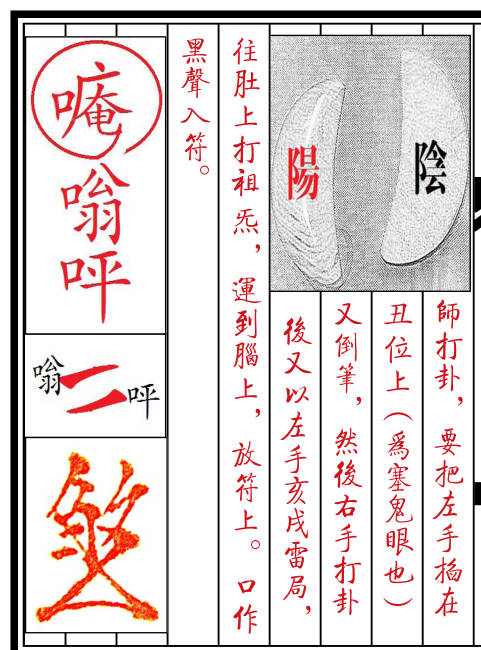 陰
陽
師打卦，要把左手掐在
丑位上（爲塞鬼眼也）
又倒筆，然後右手打卦
後又以左手亥戌雷局，
往肚上打祖炁，運到腦上，放符上。口作
黑聲入符。
唵
嗡
呯
嗡
呯